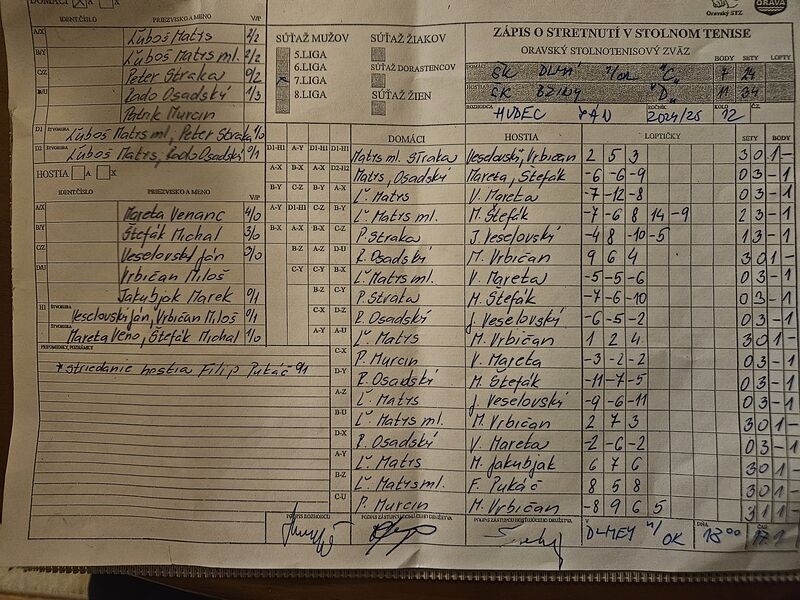 DOMÁCI X A X
IDENT.ČÍSLO PRIEZVISKO A MENO V/P
A/X Ľuboš Matys 2/2
B/Y Ľuboš Matys ml. 2/2
C/Z Peter Straka 0/2
D/U Rado Osadský 1/3
Patrik Murcin
D1 ŠTVORHRA Ľuboš Matys ml, Peter Straka 1/0
D2 ŠTVORHRA Ľuboš Matys, Rado Osadský 0/1
HOSTIA A X
IDENT.ČÍSLO PRIEZVISKO A MENO V/P
A/X Mareta Venanc 4/0
B/Y Štefák Michal 3/0
C/Z Veselovský Ján 3/0
D/U Vrbičan Miloš
Jakubjak Marek 0/1
H1 ŠTVORHRA Veselovský Ján, Vrbičan Miloš 0/1
ŠTVORHRA Mareta Veno, Štefák Michal 1/0
PRIPOMIENKY, POZNÁMKY
* striedanie hostia Filip Pukáč 0/1
SÚŤAŽ MUŽOV
5.LIGA
6.LIGA
x 7.LIGA
8.LIGA
SÚŤAŽ ŽIAKOV
SÚŤAŽ DORASTENCOV
SÚŤAŽ ŽIEN
Oravský STZ
ORAVA
ZÁPIS O STRETNUTÍ V STOLNOM TENISE
ORAVSKÝ STOLNOTENISOVÝ ZVÄZ BODY SETY LOPTY
DOMÁCI ŠK DLHÁ n/OR "C" 7 24
HOSTIA ŠK BZINY "D" 11 34
ROZHODCA HUDEC JÁN ROČNÍK 2024/25 KOLO 12 Č.Z.
DOMÁCI HOSTIA LOPTIČKY SETY BODY
D1-H1 A-Y D1-H1 D1-H1 Matys ml. Straka Veselovský, Vrbičan 2 5 3 3 0 1 -
A-X B-X A-X D2-H2 Matys, Osadský Mareta, Štefák -6 -6 -9 0 3 - 1
B-Y C-Z B-Y A-X Ľ. Matys V. Mareta -7 -12 -8 0 3 - 1
A-Y D1-H1 C-Z B-Y Ľ. Matys ml. M. Štefák -7 -6 8 14 -9 2 3 - 1
B-X A-X B-X C-Z P. Straka J. Veselovský -4 8 -10 -5 1 3 - 1
B-Z A-Z D-U R. Osadský M. Vrbičan 9 6 4 3 0 1 -
C-Y C-Y B-X Ľ. Matys ml. V. Mareta -5 -5 -6 0 3 - 1
B-Z C-Y P. Straka M. Štefák -7 -6 -10 0 3 - 1
C-X D-Z R. Osadský J. Veselovský -6 -5 -2 0 3 - 1
A-Y A-U Ľ. Matys M. Vrbičan 1 2 4 3 0 1 -
C-X P. Murcin V. Mareta -3 -2 -2 0 3 - 1
D-Y R. Osadský M. Štefák -11 -7 -5 0 3 - 1
A-Z Ľ. Matys J. Veselovský -9 -6 -11 0 3 - 1
B-U Ľ. Matys ml. M. Vrbičan 2 7 3 3 0 1 -
D-X R. Osadský V. Mareta -2 -6 -2 0 3 - 1
A-Y Ľ. Matys M. Jakubjak 6 7 6 3 0 1 -
B-Z Ľ. Matys ml. F. Pukáč 8 5 8 3 0 1 -
C-U P. Murcin M. Vrbičan -8 9 6 5 3 1 1 -
PODPIS ROZHODCU PODPIS ZÁSTUPCU DOMÁCEHO DRUŽSTVA PODPIS ZÁSTUPCU HOSŤUJÚCEHO DRUŽSTVA V DLHEJ n/OR DŇA 18 00 ČAS 17.1